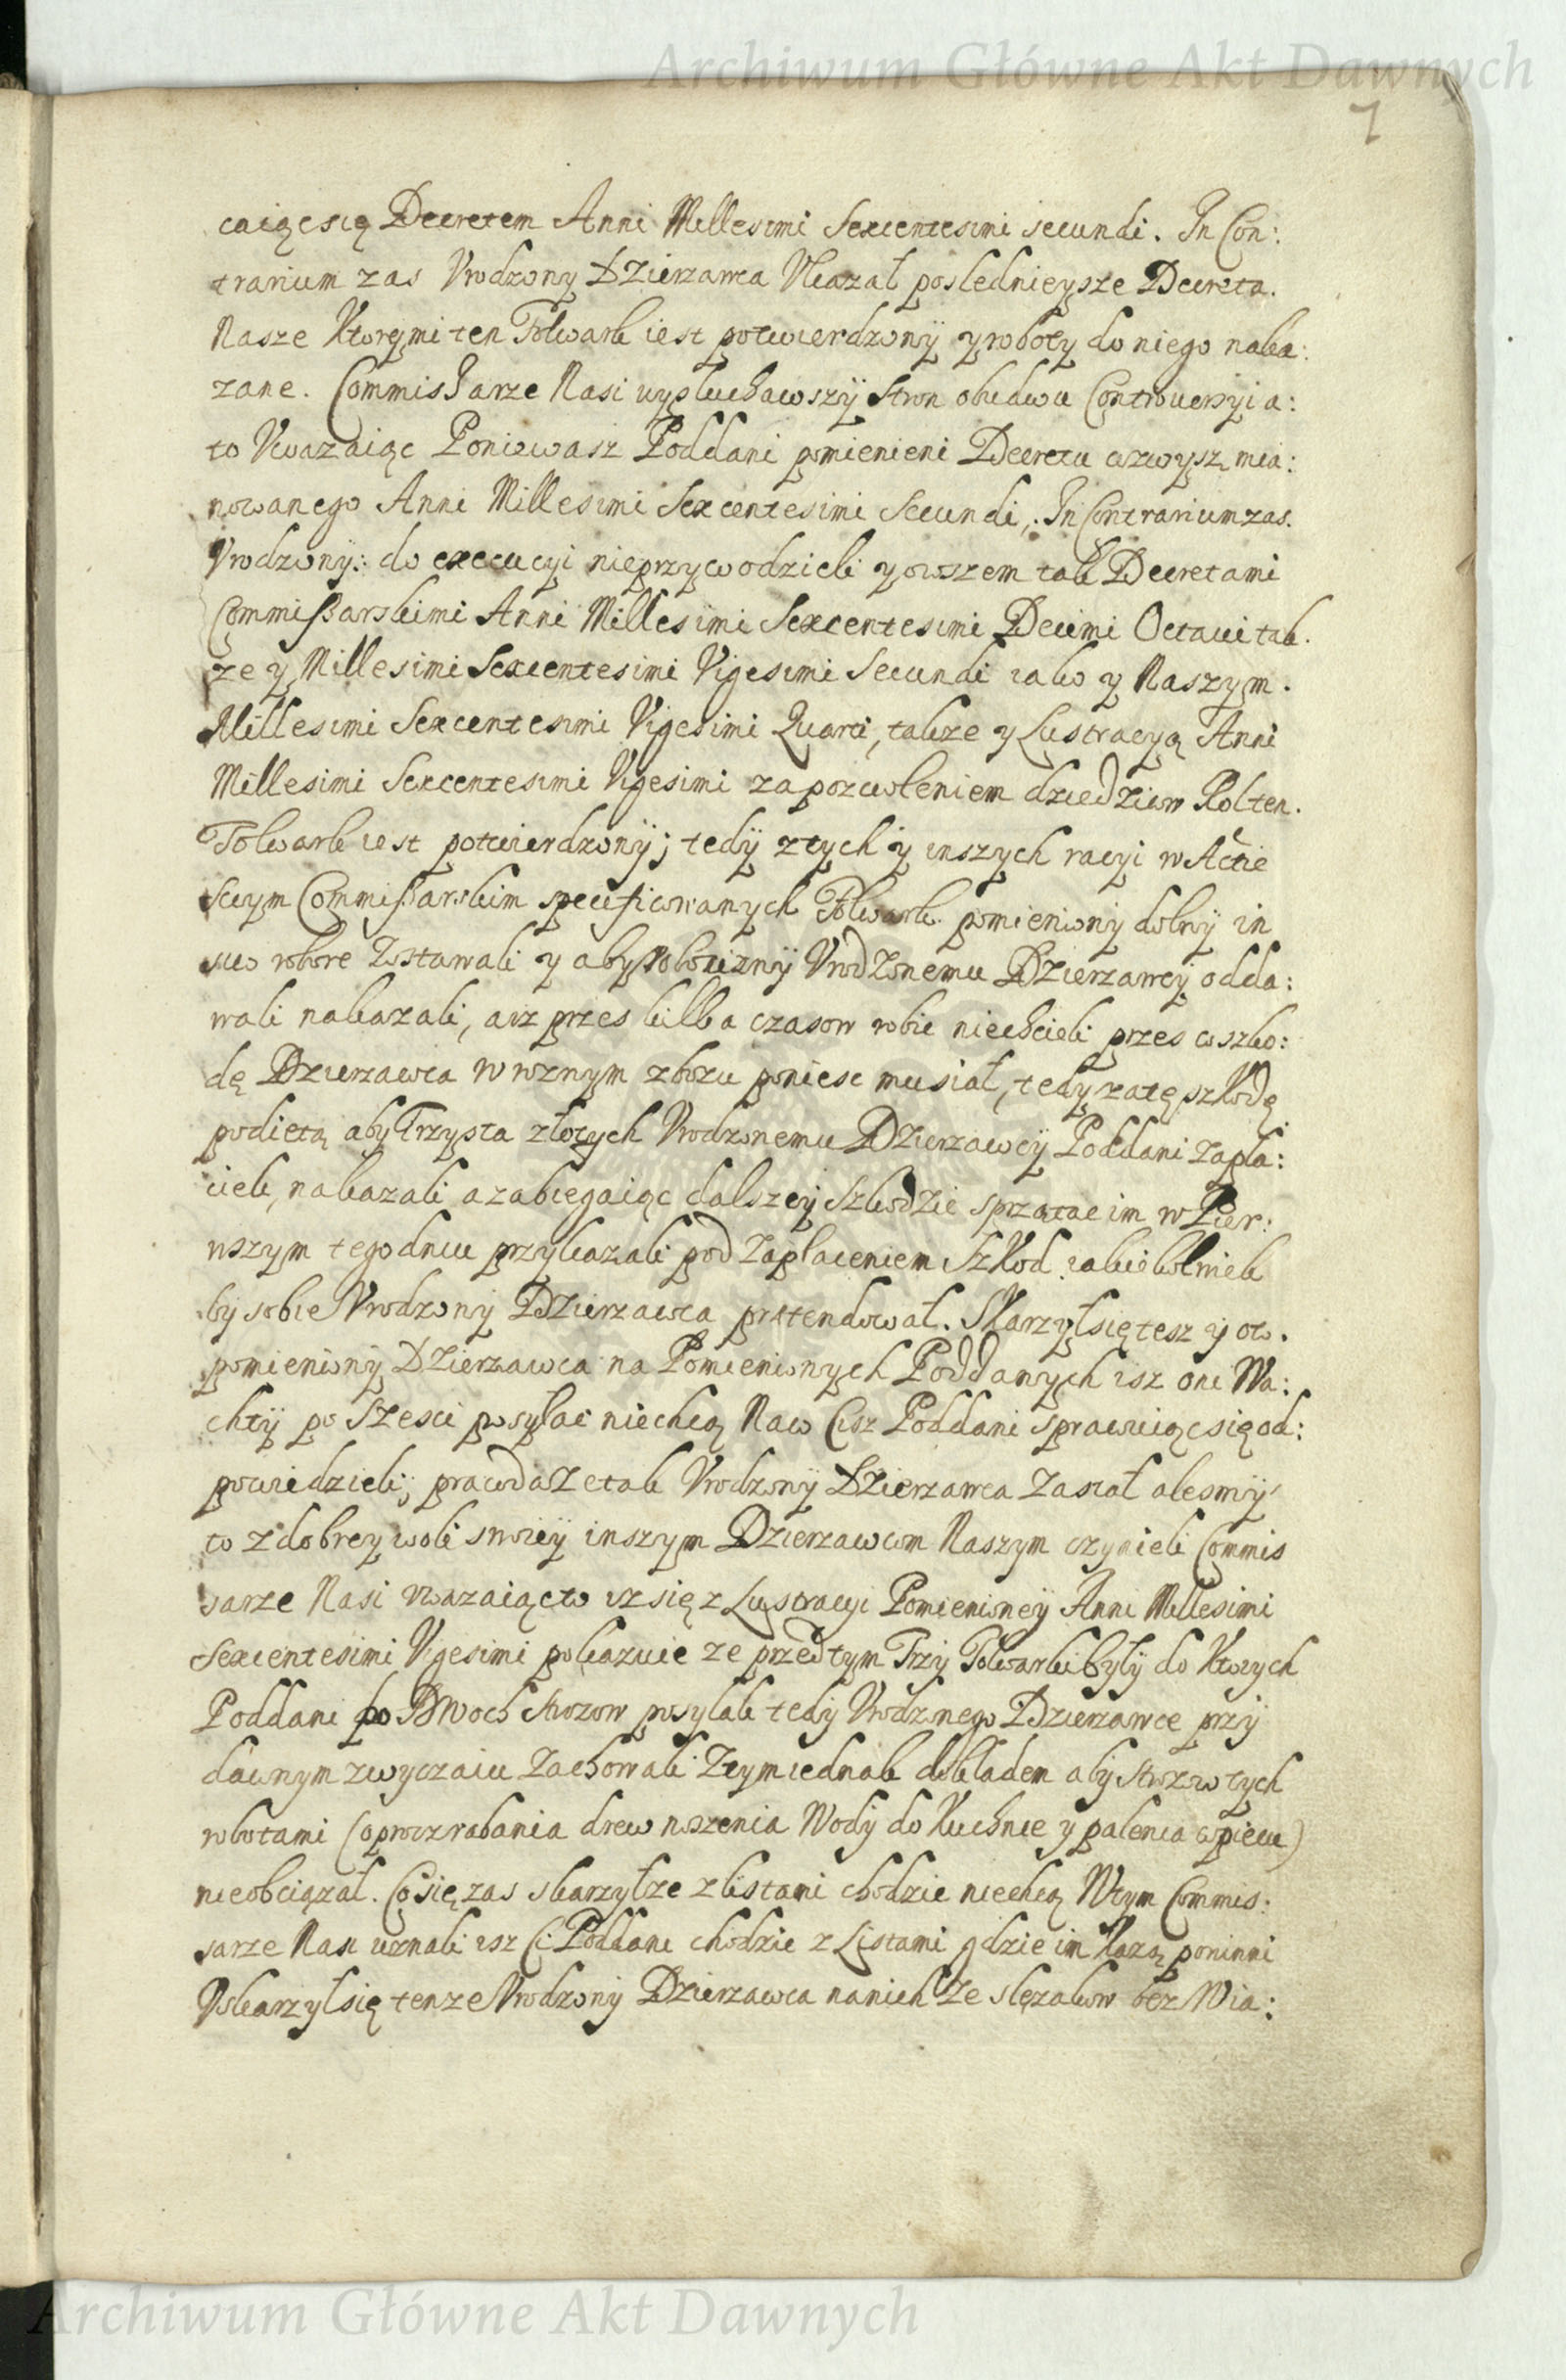 Archiwum Główne Akt Dawnych
7
caiącsię Decretem Anni Millesimi Sexcentesimi secundi. In Con:
trarium zas Vrodzony Dzierzawca Vkazał posledniejsze Decreta.
Nasze ktorymi ten Folwark iest potwierdzony y roboty do niego naka:
zane. Commissarze Nasi wysłuchawszÿ stron obudwu Controuersyi a:
to Vwazaiąc Poniewasz Poddani pomienieni Decretu wzwysz mia:
nowanego Anni Millesimi Sexcentesimi Secundi, In Contrarium zas.
Vrodzony: do execucyi nieprzywodzieli y owszem tak Decretami
Commissarskimi Anni Millesimi Sexcentesimi Decimi Octaui tak.
ze y Millesimi Sexcentesimi Vigesimi Secundi iako y Naszym.
Millesimi Sexcentesimi Vigesimi Quarti, takze y Lustracyą Anni
Millesimi Sexcentesimi Vigesimi za pozwoleniem dziedzicow Rol ten.
Folwark iest potwierdzonÿ; tedÿ z tych ÿ inszych racyi w Actie
swym Commissarskim specificowanych Folwark pomieniony dolny in
suo robore zostawali y aby robociznÿ Vrodzonemu Dzierzawcy odda:
wali nakazali, a iz przes kilka czasow robic niechcieli przes co szko:
dę Dzierzawca w roznym zbozu poniesc musiał, tedy za tę szkodę
podietą aby Trzysta złotych Vrodzonemu Dzierzawcÿ Poddani zapła:
cieli, nakazali a zabiegaiąc dalszeÿ szkodzie sprzątac im w Pier:
wszym tegodniu przykazali pod zapłaceniem szkod iakichkolwiek
by sobie Vrodzony Dzierzawca pretendował. Skarzył się tesz ÿ oto.
pomieniony Dzierzawca na Pomienionych Poddanych isz oni Wa:
chtÿ po szesci posyłac niechcą Na co Cisz Poddani sprawuiąc się od:
powiedzieli; prawda ze tak Vrodzonÿ Dzierzawca zastał alesmÿ
to z dobrey woli swoieÿ inszym Dzierzawcom Naszym czynieli Commis
sarze Nasi vwazaiąc to iz się z Lustracyi Pomienioneÿ Anni Millesimi
Sexcentesimi Vigesimi pokazuie ze przed tym Trzÿ Folwarki byłÿ do ktorych
Poddani po Dwoch strozow posylali tedÿ Vrodzonego Dzierzawce przÿ
dawnym zwyczaiu zachowali z tym iednak dokładem abÿ strozow tych
robotami (oprocz rabania drew noszenia Wodÿ do Kuchnie y palenia w piecu)
nieobciązał. Co się zas skarzył ze z listami chodzic niechcą W tym Commis:
sarze Nasi uznali isz Ci Poddani chodzic z Listami gdzie im Kazą powinni
Vskarzył się tenze Vrodzony Dzierzawca na nich ze slęzakow bez Wia:
Archiwum Główne Akt Dawnych